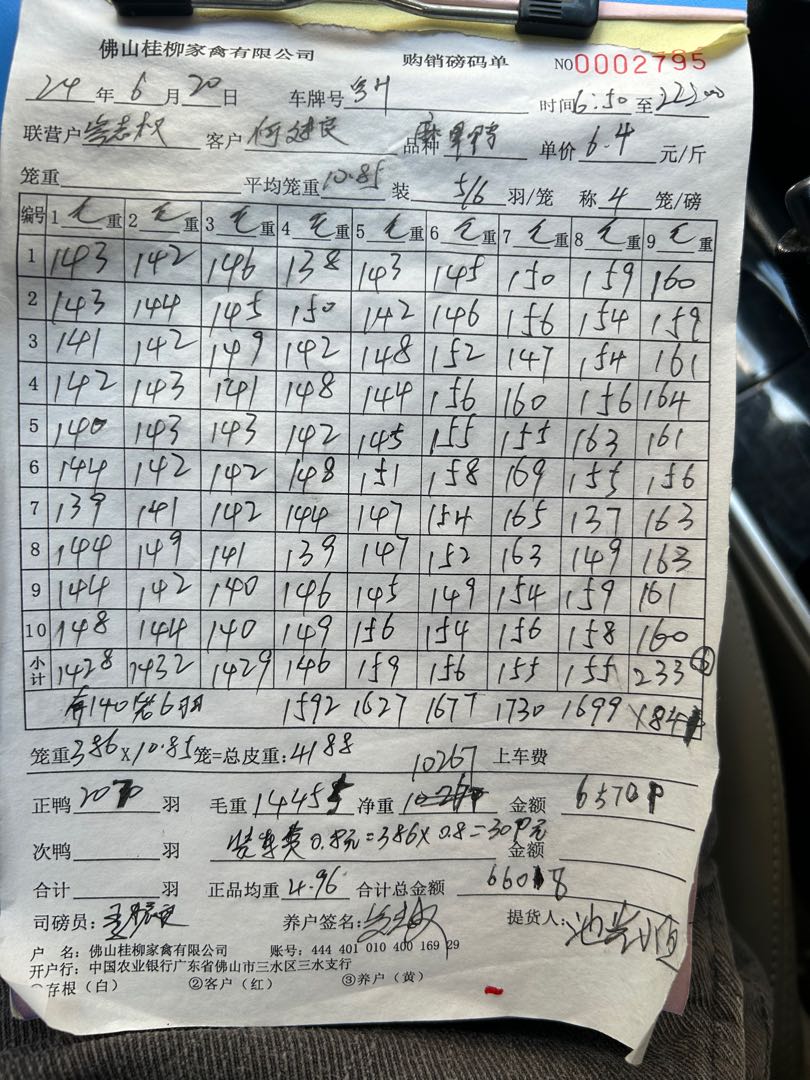 佛山桂柳家禽有限公司 购销磅码单 NO0002795
24年6月20日 车牌号 时间6:50至22:00
联营户 客户 品种 单价6.4元/斤
笼重 平均笼重10.85 装5/6羽/笼 称4笼/磅
编号 1毛重 2毛重 3毛重 4毛重 5毛重 6毛重 7毛重 8毛重 9毛重
1 143 142 146 138 143 145 150 159 160
2 143 144 145 150 142 146 156 154 159
3 141 142 149 142 148 152 147 154 161
4 142 143 141 148 144 156 160 156 164
5 140 143 143 142 145 155 155 163 161
6 144 142 142 148 151 158 169 155 156
7 139 141 142 144 147 154 165 137 163
8 144 149 141 139 147 152 163 149 163
9 144 142 140 146 145 149 154 159 161
10 148 144 140 149 156 154 156 158 160
小计 1428 1432 1429 146 159 156 155 155 233 ⑥
有140笼6羽 1592 1627 1677 1730 1699 1841
笼重386×10.85笼=总皮重:4188 10267 上车费
正鸭2070羽 毛重14455 净重 金额
次鸭 羽 装车费0.8元=386×0.8=309元 金额
合计 羽 正品均重4.96 合计总金额66018
司磅员: 养户签名: 提货人:
户 名:佛山桂柳家禽有限公司 账号:444 401 010 400 169 29
开户行:中国农业银行广东省佛山市三水区三水支行
①存根(白) ②客户(红) ③养户(黄)